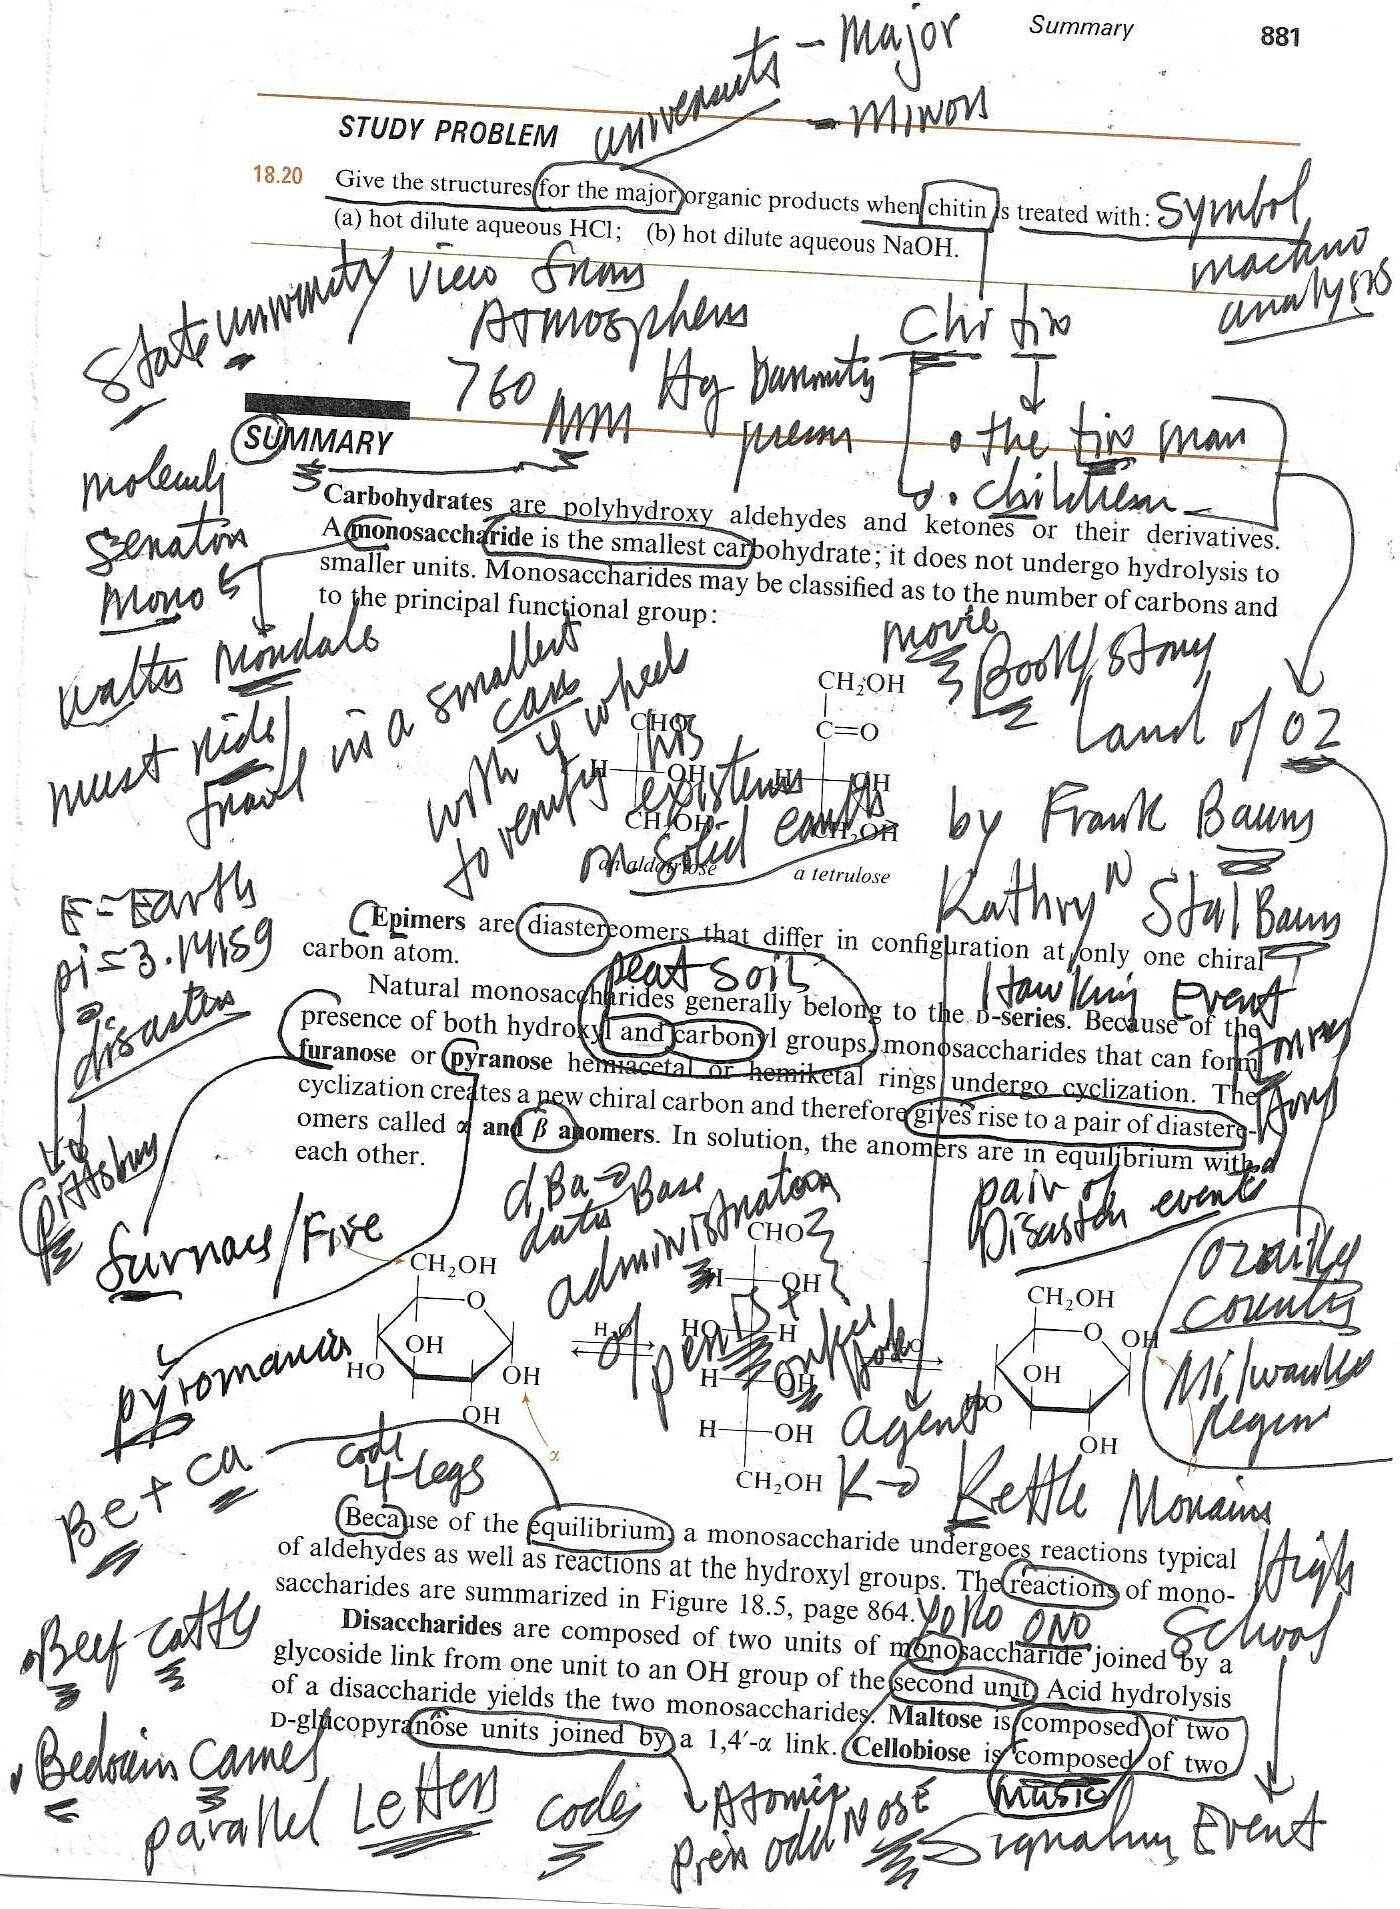 Summary 881
universities - Major
- Minors
STUDY PROBLEM
18.20 Give the structures for the major organic products when chitin is treated with: Symbol
(a) hot dilute aqueous HCl; (b) hot dilute aqueous NaOH.
machine
analysis
State university/ View from
Atmosphere
Chi tin
760 mm Hg
the tin man
children
SUMMARY
Carbohydrates are polyhydroxy aldehydes and ketones or their derivatives.
A monosaccharide is the smallest carbohydrate; it does not undergo hydrolysis to
smaller units. Monosaccharides may be classified as to the number of carbons and
to the principal functional group:
Senators
Mono
Walter Mondale
must ride/
travel in a smallest
car
with 4 wheels
to verify his
existence
on solid earth
movie
Book/Story
Land of OZ
by Frank Baum
Kathryn Stal Baum
Hawking Event
CHO
H OH
CH₂OH
an aldotriose
CH₂OH
C=O
H OH
CH₂OH
a tetrulose
E = Earth
pi = 3.14159
disasters
Pittsburg
Epimers are diastereomers that differ in configuration at only one chiral
carbon atom.
peat soil
Natural monosaccharides generally belong to the D-series. Because of the
presence of both hydroxyl and carbonyl groups, monosaccharides that can form
furanose or pyranose hemiacetal or hemiketal rings undergo cyclization. The
cyclization creates a new chiral carbon and therefore gives rise to a pair of diastere-
omers called α and β anomers. In solution, the anomers are in equilibrium with
each other.
dBa
data Base
administration
of
pair of
Disaster events
furnace/Fire
pyromania
county
CH₂OH
O
OH
HO OH
OH
α
H₂O
CHO
H OH
HO H
H OH
H OH
CH₂OH
H₂O
CH₂OH
O OH
OH
HO
OH
β
agent
K → Kettle Morains
High
School
Be + Ca
code
4-Legs
Because of the equilibrium, a monosaccharide undergoes reactions typical
of aldehydes as well as reactions at the hydroxyl groups. The reactions of mono-
saccharides are summarized in Figure 18.5, page 864.
Yoko ONO
Disaccharides are composed of two units of monosaccharide joined by a
glycoside link from one unit to an OH group of the second unit. Acid hydrolysis
of a disaccharide yields the two monosaccharides. Maltose is composed of two
D-glucopyranose units joined by a 1,4′-α link. Cellobiose is composed of two
Beef cattle
Bedouin Camel
parallel Letters codes
Atomic
Nose
Music
Signature Event